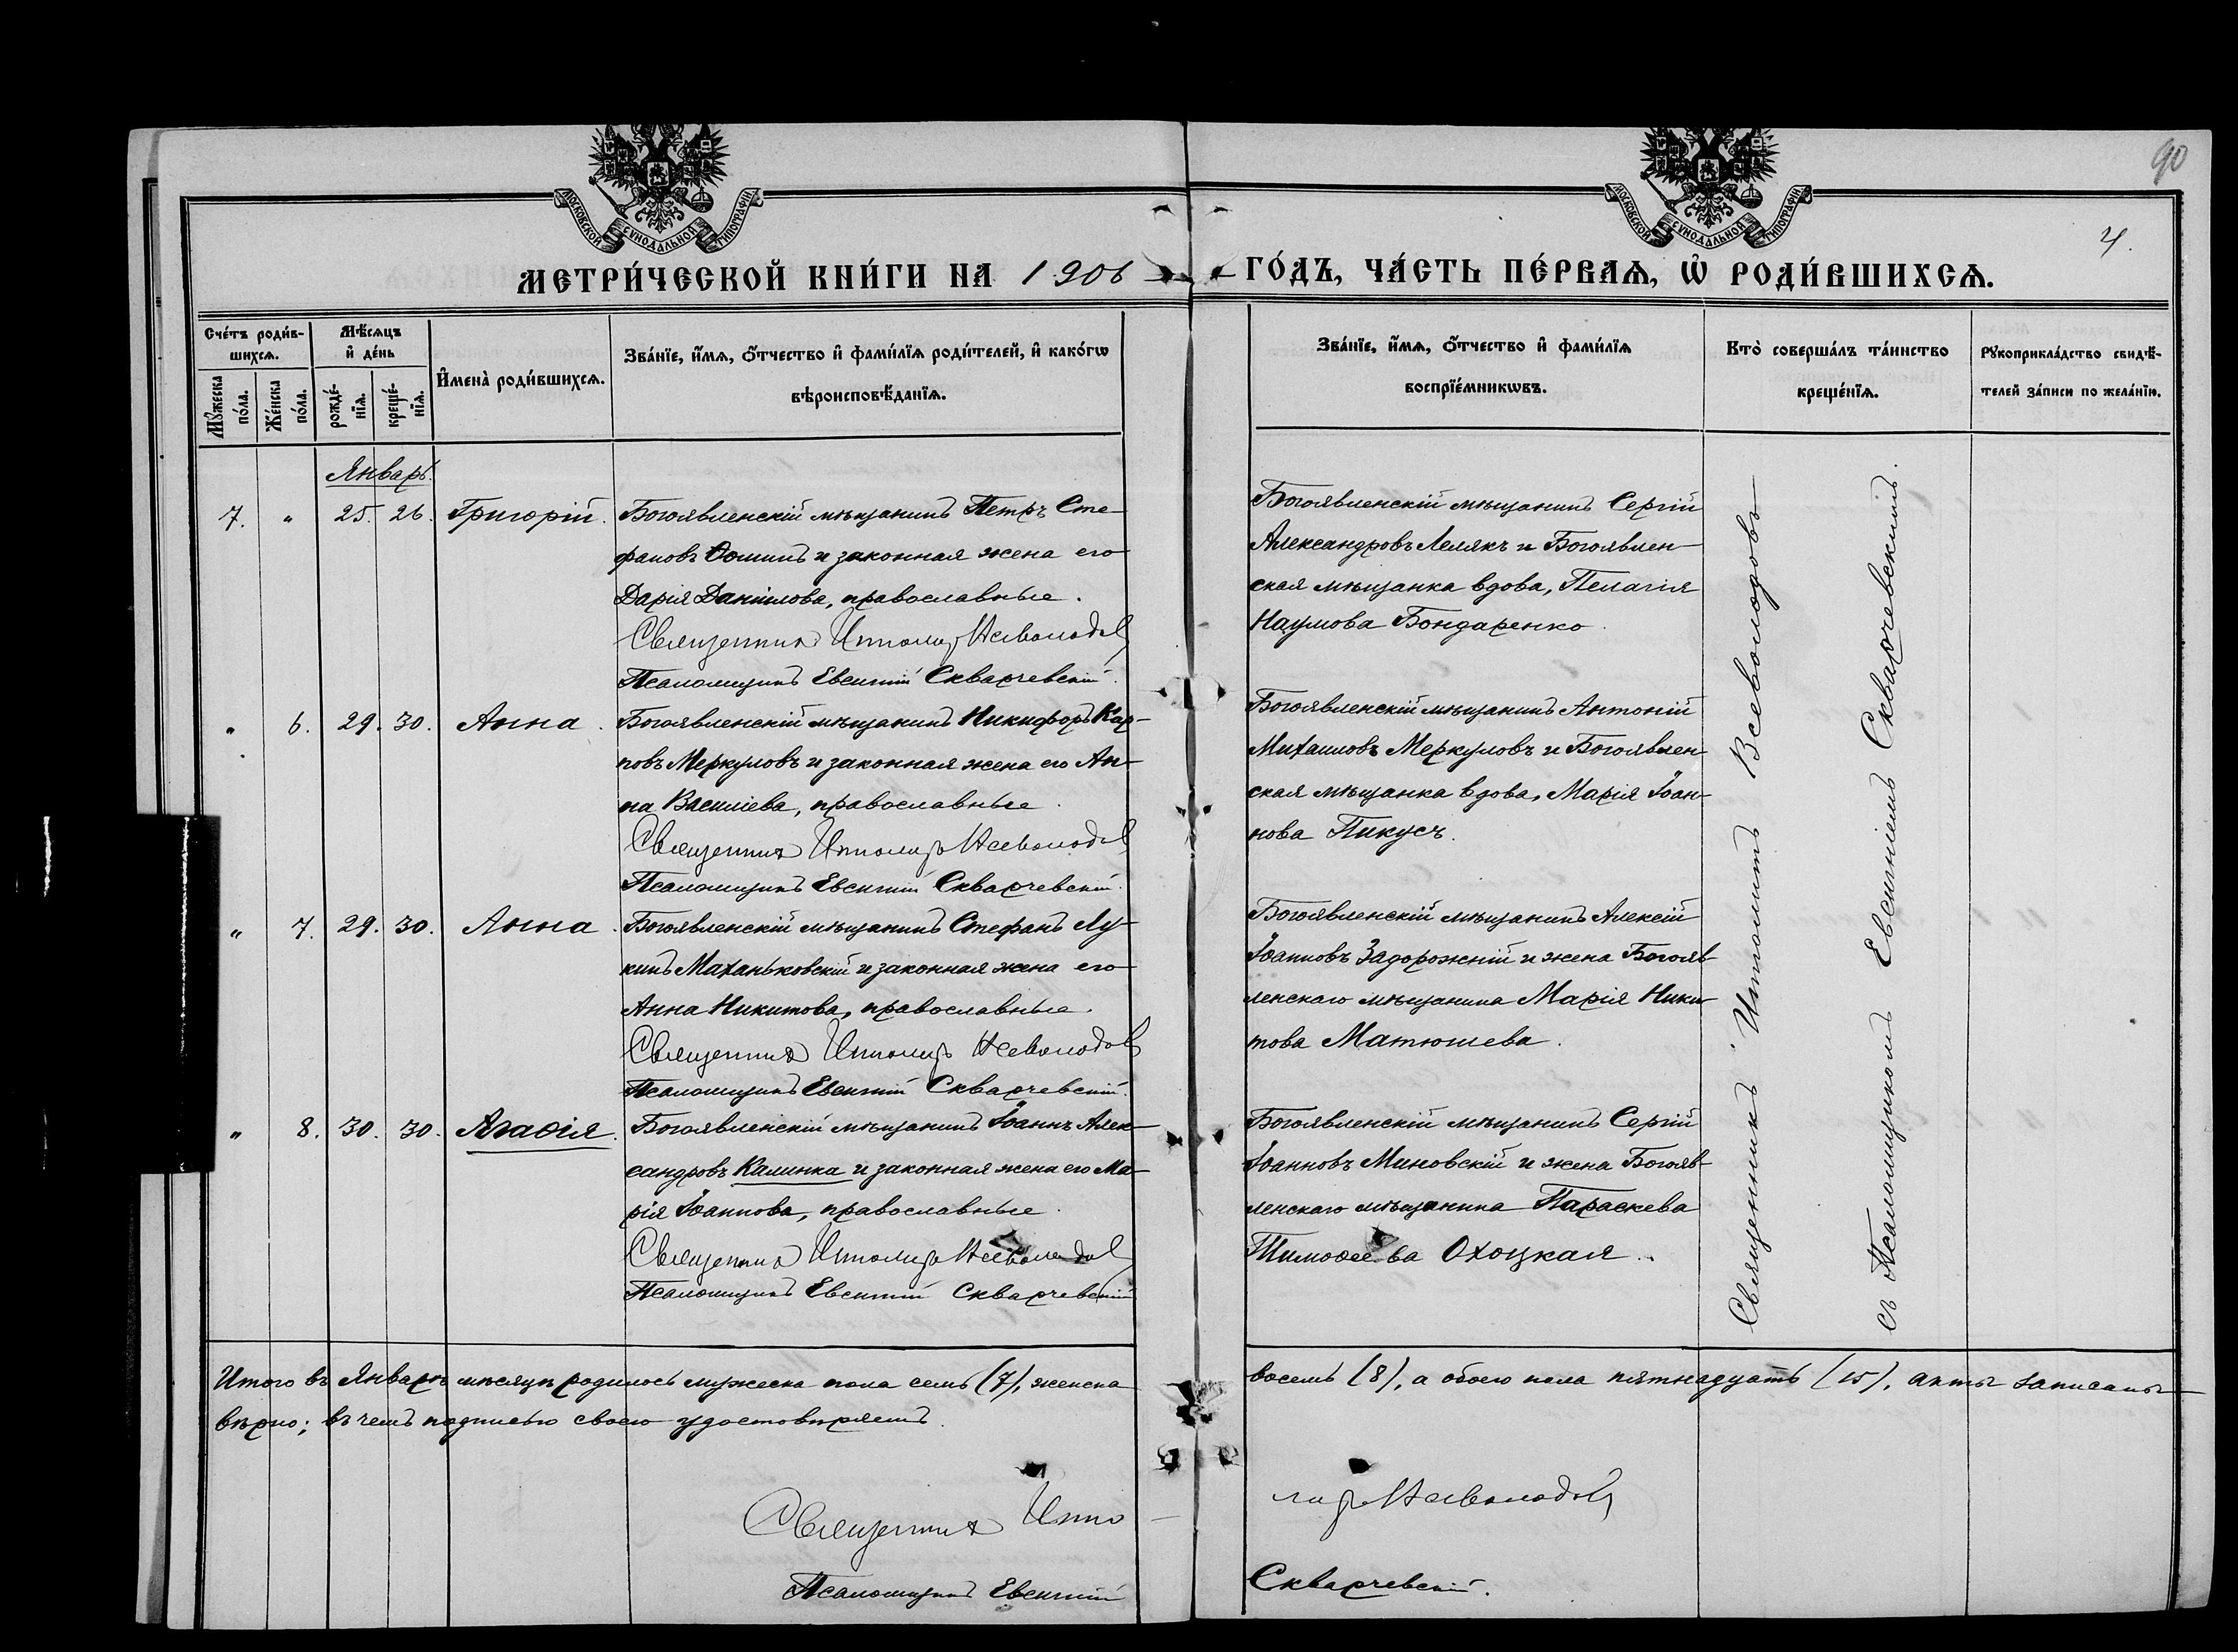 90
4.
МОСКОВСКОЙ СУНОДАЛЬНОЙ ТИПОГРАФІИ
МОСКОВСКОЙ СУНОДАЛЬНОЙ ТИПОГРАФІИ
МЕТРИ́ЧЕСКОЙ КНИ́ГИ НА 1906 ГО́ДЪ, ЧА́СТЬ ПЕ́РВАѦ, Ѽ РОДИ́ВШИХСѦ.
Сче́тъ роди́в-
шихсѧ.
Мꙋ́жеска по́ла.
Же́нска по́ла.
Мѣ́сѧцъ
и҆ де́нь
рожде́-нїѧ.
креще́-нїѧ.
И҆мена̀ роди́вшихсѧ.
Зва́нїе, и҆́мѧ, ѻ҆́тчество и҆ фами́лїѧ роди́телей, и҆ како́гѡ
вѣроисповѣ́данїѧ.
Зва́нїе, и҆́мѧ, ѻ҆́тчество и҆ фами́лїѧ
воспрїе́мникѡвъ.
Кто̀ соверша́лъ та́инство
креще́нїѧ.
Рꙋкоприкла́дство свидѣ́-
телей за́писи по жела́нїю.
Январь.
7. " 25. 26. Григорій.
Богоявленскій мѣщанинъ Петръ Сте-
фановъ Ѳоминъ и законная жена его
Дарія Даніилова, православные.
Священникъ Ипполитъ Всеволодовъ
Псаломщикъ Евсигній Скварчевскій.
Богоявленскій мѣщанинъ Сергій
Александровъ Лелякъ и Богоявлен-
ская мѣщанка вдова, Пелагія
Наумова Бондаренко.
" 6. 29. 30. Анна.
Богоявленскій мѣщанинъ Никифоръ Кар-
повъ Меркуловъ и законная жена его Ан-
на Василіева, православные.
Священникъ Ипполитъ Всеволодовъ
Псаломщикъ Евсигній Скварчевскій.
Богоявленскій мѣщанинъ Антоній
Михаиловъ Меркуловъ и Богоявлен-
ская мѣщанка вдова, Марія Іоан-
нова Пикусъ.
" 7. 29. 30. Анна.
Богоявленскій мѣщанинъ Стефанъ Лу-
кинъ Маханьковскій и законная жена его
Анна Никитова, православные.
Священникъ Ипполитъ Всеволодовъ
Псаломщикъ Евсигній Скварчевскій.
Богоявленскій мѣщанинъ Алексій
Іоанновъ Задорожній и жена Богояв-
ленскаго мѣщанина Марія Ники-
това Матюшева.
" 8. 30. 30. Агаѳія.
Богоявленскій мѣщанинъ Іоаннъ Алек-
сандровъ Калинка и законная жена его Ма-
рія Іоаннова, православные.
Священникъ Ипполитъ Всеволодовъ
Псаломщикъ Евсигній Скварчевскій
Богоявленскій мѣщанинъ Сергій
Іоанновъ Миновскій и жена Богояв-
ленскаго мѣщанина Параскева
Тимоѳеева Охоцкая.
Священникъ Ипполитъ Всеволодовъ
съ Псаломщикомъ Евсигніемъ Скварчевскимъ.
Итого въ Январѣ мѣсяцѣ родилось мужеска пола семь (7), женска восемь (8), а обоего пола пятнадцать (15), акты записаны
вѣрно; въ чемъ подписью своею удостовѣряемъ.
Священникъ Ипполитъ Всеволодовъ
Псаломщикъ Евсигній Скварчевскій.